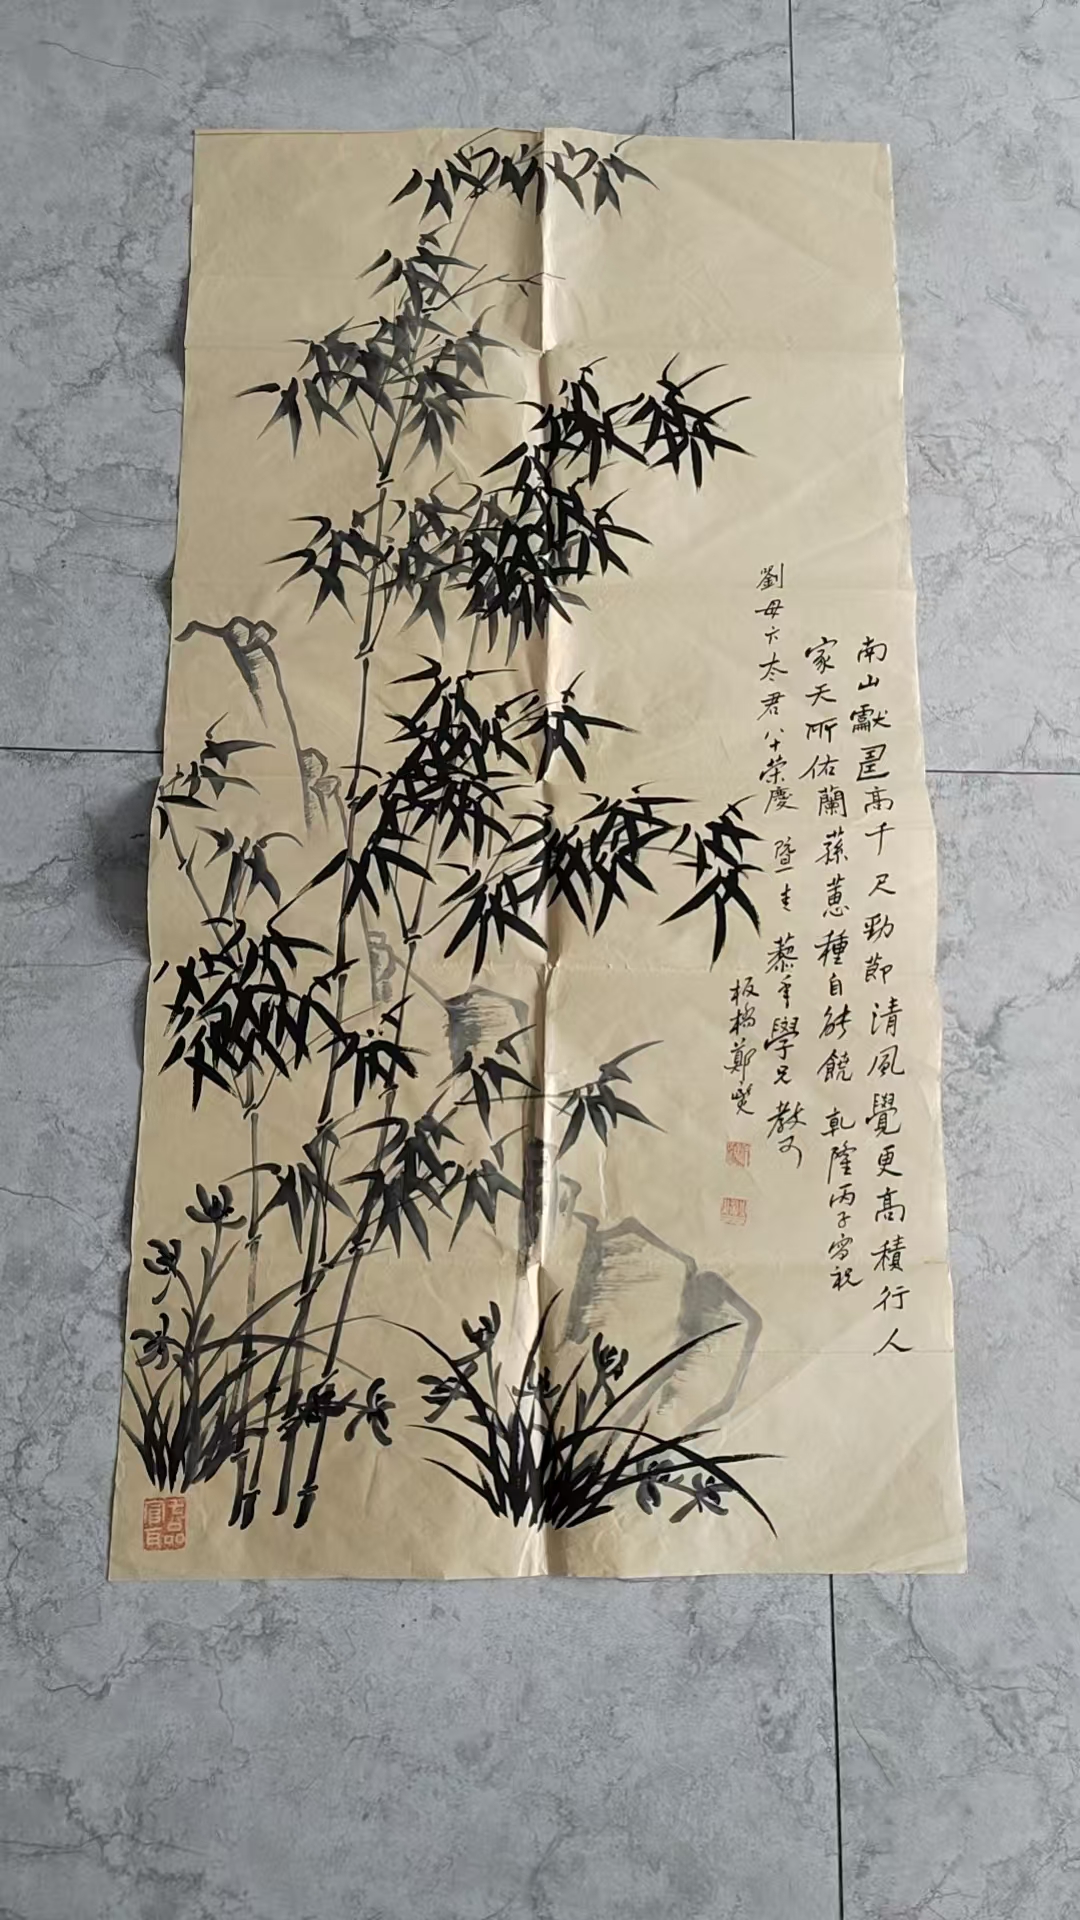 南山獻𦤎高千尺勁節清風覺更高積行人
家天所佑蘭蓀蕙種自能饒 乾隆丙子寫祝
劉母六太君八十榮慶 暨 藜 學兄 教
板橋鄭燮